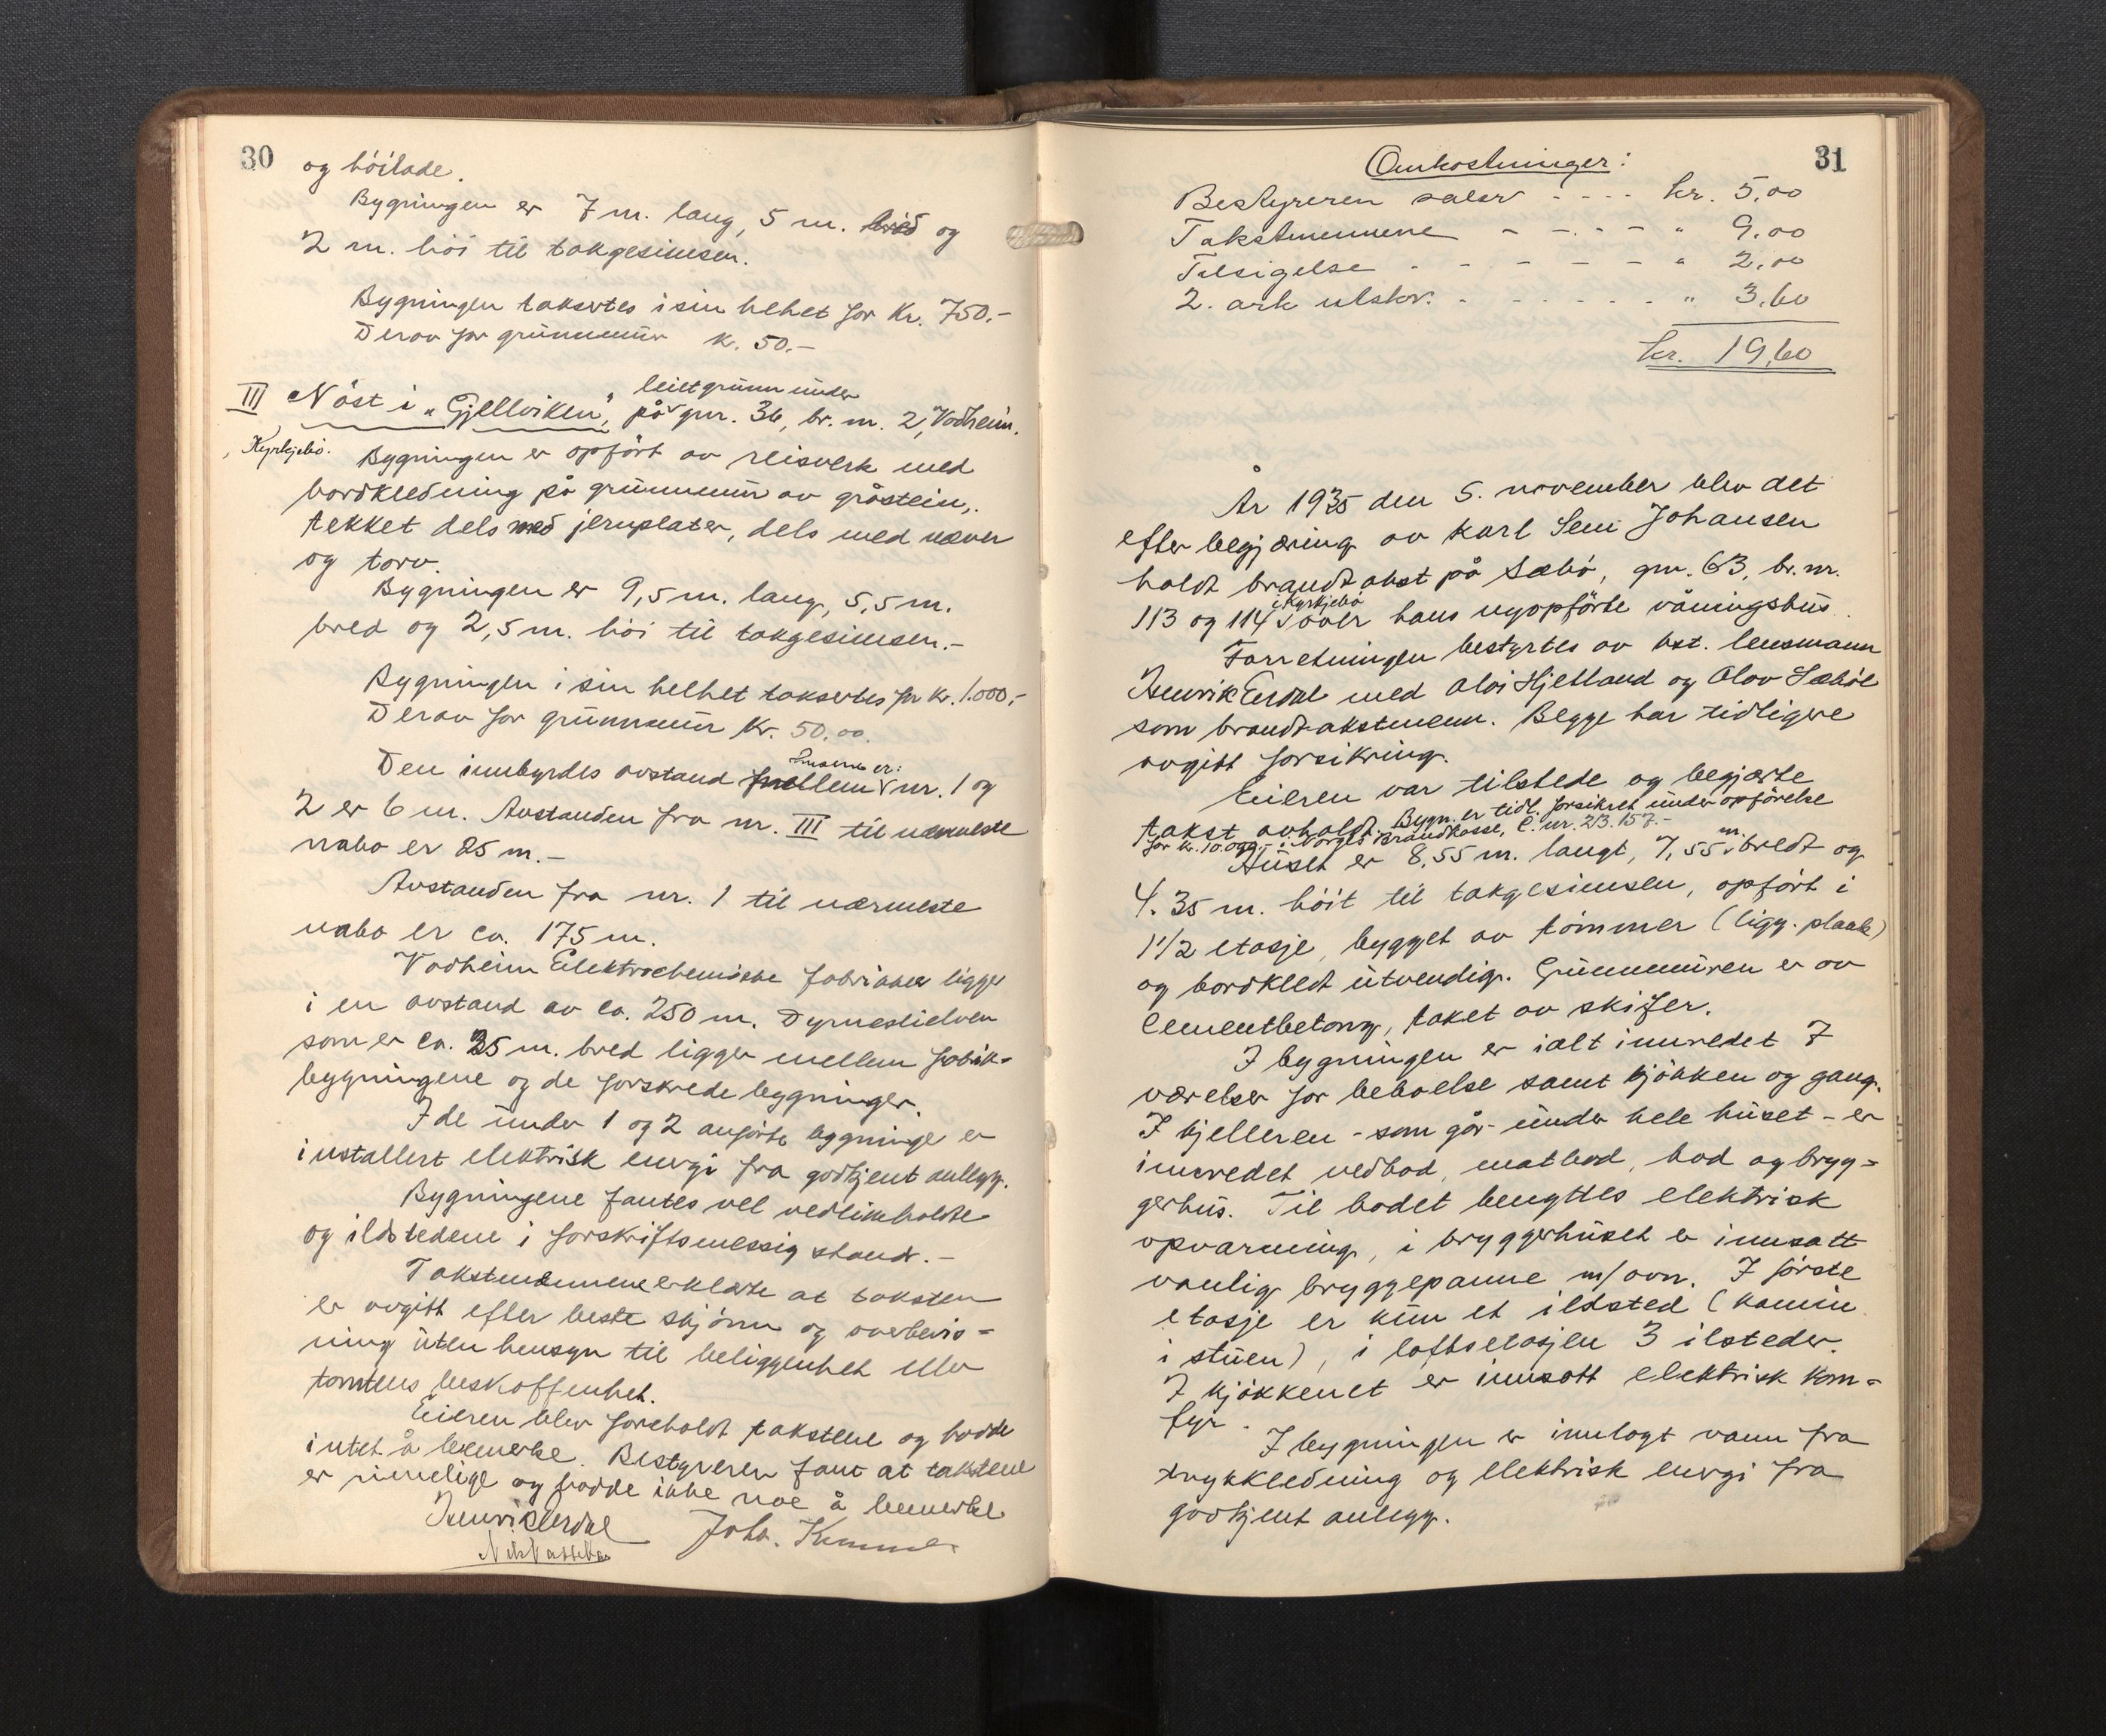 30
og höilade.
Bygningen er 7 m. lang, 5 m. bred og
2 m. höi til takgesimsen.
Bygningen taksertes i sin helhet for Kr. 750.-
Derav for grunnmur kr. 50.-
leiet grunn under
III Nöst i "Gjellviken", på gnr. 36, br. nr. 2, Vadheim,
Kyrkjebö.
Bygningen er opfört av reisverk med
bordkledning på grunnmur av gråstein,
tekket dels med jernplater, dels med næver
og torv.
Bygningen er 9,5 m. lang, 5,5 m.
bred og 2,5 m. höi til takgesimsen.-
Bygningen i sin helhet taksertes for kr. 1.000,-
Derav for grunnmur kr. 50,00.
Den innbyrdes avstand mellem nr. 1 og
2 er 6 m. Avstanden fra nr. III til nærmeste
nabo er 25 m.-
Avstanden fra nr. 1 til nærmeste
nabo er ca. 175 m.
Vadheim Elektrochemiske fabrikker ligger
i en avstand av ca. 250 m. Dyrneslielven
som er ca. 35 m. bred ligger mellem fabrik-
bygningene og de forskrede bygninger.
I de under 1 og 2 anförte bygninge er
installert elektrisk energi fra godkjent anlegg.
Bygningene fantes vel vedlikeholdte
og ildstedene i forskriftsmessig stand.-
Takstmennene erklærte at taksten
er avgitt efter beste skjönn og overbevis-
ning uten hensyn til beliggenhet eller
tomtens beskaffenhet.
Eieren blev foreholdt takstene og hadde
intet å bemerke. Bestyreren fant at takstene
er rimelige og hadde ikke noe å bemerke
Henrik Erdal Johs.
31
Omkostninger:
Bestyreren salær - - - - kr. 5,00
Takstmennene - - - - " 9.00
Tilsigelse - - - - - " 2,00
2. ark utskr. - - - - - " 3,60
kr. 19,60
År 1935 den 5. november blev det
efter begjæring av Karl Johansen
holdt brandtakst på Sæbö, gnr. 63, br. nr.
i Kyrkjebö
113 og 114 over hans nyopförte våningshus.
Forretningen bestyrtes av kst. lensmann
Henrik Erdal med Aloi Hjetland og Olav Sæböe
som brandtakstmenn. Begge har tidligere
avgitt forsikring.
Eieren var tilstede og begjærte
takst avholdt. Bygn. er tidl. forsikret under opförelse
for kr. 10.000,- i Norges Brandkasse, l. nr. 213.157.-
Huset er 8,55 m. langt, 7,55 m. bredt og
4.35 m. höit til takgesimsen, opfört i
1 1/2 etasje, bygget av tömmer (ligg. plank)
og bordkledt utvendig. Grunnmuren er av
cementbetong, taket av skifer.
I bygningen er ialt innredet 7
værelser for beboelse samt kjökken og gang.
I kjelleren - som går under hele huset - er
innredet vedbod, matbod, bad og bryg-
gerhus. Til badet benyttes elektrisk
opvarming, i bryggerhuset er innsatt
vanlig bryggepanne m/ovn. I förste
etasje er kun et ildsted (kamin
i stuen), i loftsetasjen 3 ilsteder.
I kjökkenet er innsatt elektrisk kom-
fyr.
I bygningen er innlagt vann fra
trykkledning og elektrisk energi fra
godkjent anlegg.